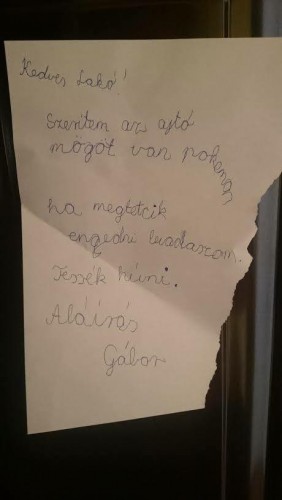 Kedves Lakó!
Szerintem az ajtó
mögöt van pokemon
ha megtetcik
engedni levadászom.
Tessék hívni.
Aláírás
Gábor